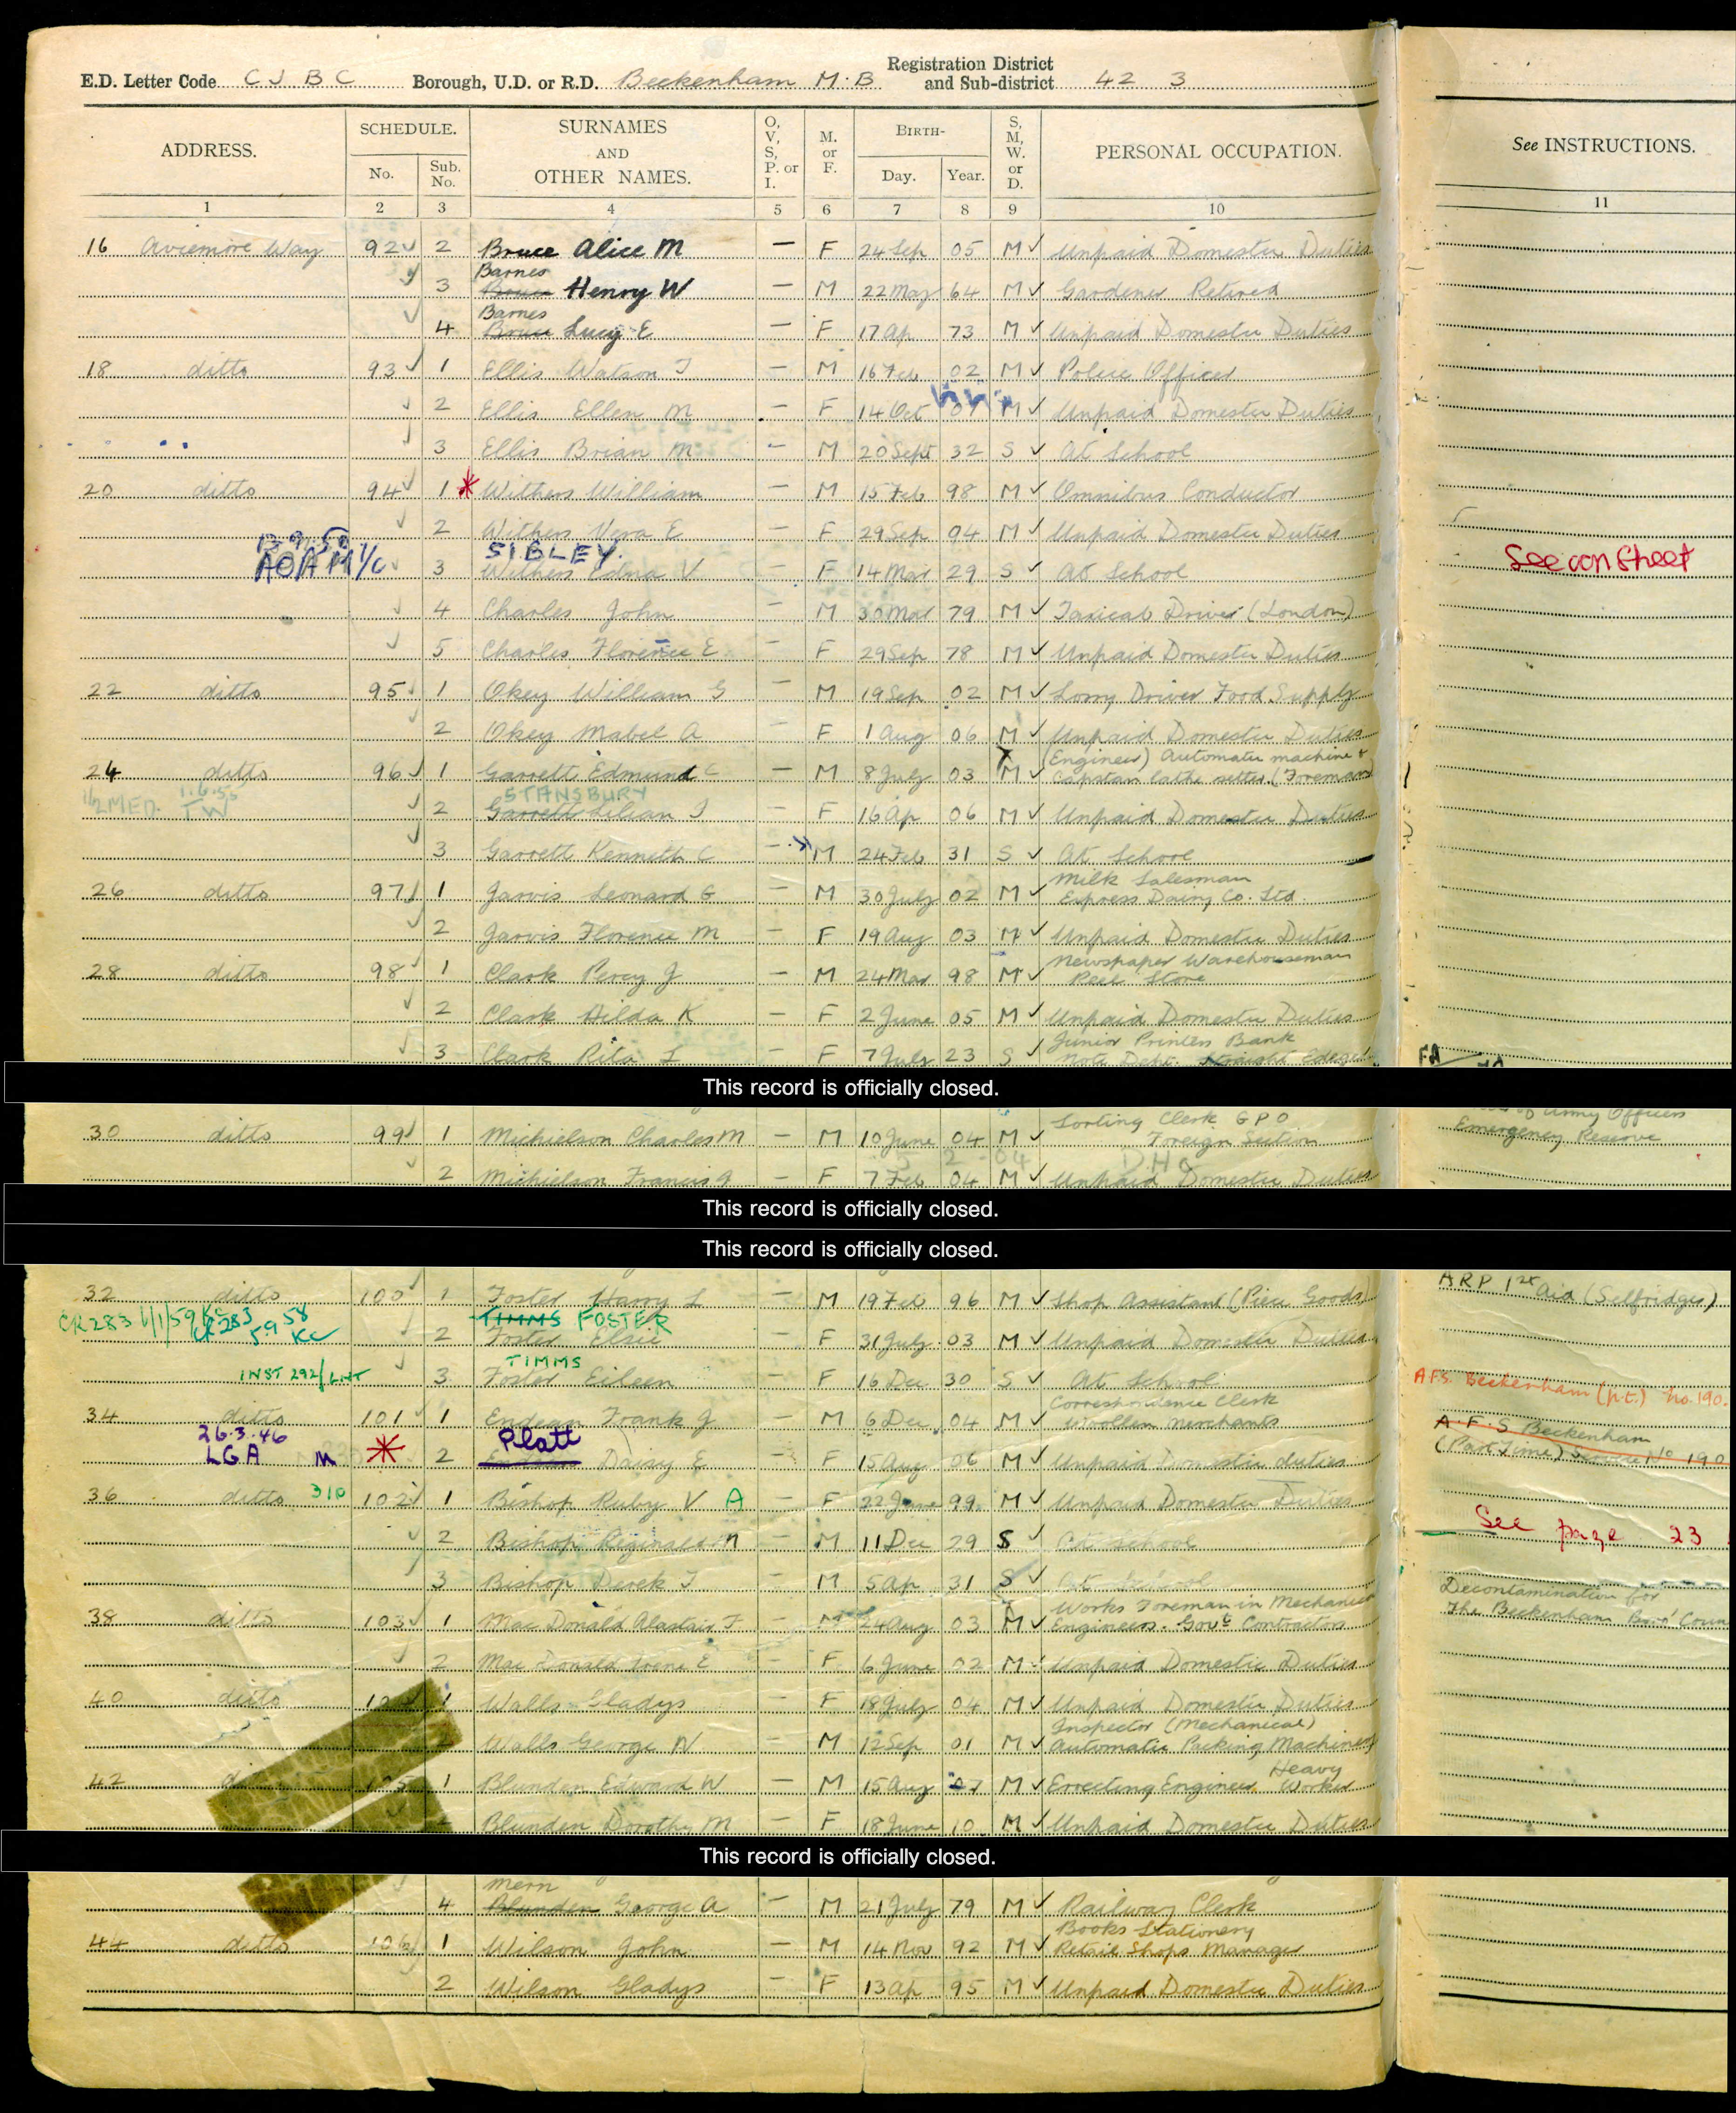 E.D. Letter Code C J B C Borough, U.D. or R.D. Beckenham M.B Registration District and Sub-district 42 3
ADDRESS. SCHEDULE. No. Sub. No. SURNAMES AND OTHER NAMES. O, V, S, P. or I. M. or F. BIRTH- Day. Year. S, M, W. or D. PERSONAL OCCUPATION. See INSTRUCTIONS.
1 2 3 4 5 6 7 8 9 10 11
16 Aviemore Way 92 2 Bruce Alice M — F 24 Sep 05 M Unpaid Domestic Duties
Barnes
3 Bruce Henry W — M 22 May 64 M Gardener Retired
Barnes
4 Bruce Lucy E — F 17 Ap 73 M Unpaid Domestic Duties
18 ditto 93 1 Ellis Watson J — M 16 Feb 02 M Police Officer
2 Ellis Ellen M — F 14 Oct 07 M Unpaid Domestic Duties
3 Ellis Brian M — M 20 Sept 32 S At School
20 ditto 94 1 * Withers William — M 15 Feb 98 M Omnibus Conductor
2 Withers Vera E — F 29 Sep 04 M Unpaid Domestic Duties
SIBLEY.
3 Withers Edna V — F 14 Mar 29 S At School See con Sheet
4 Charles John — M 30 Mar 79 M Taxicab Driver (London)
5 Charles Florence E — F 29 Sep 78 M Unpaid Domestic Duties
22 ditto 95 1 Okey William G — M 19 Sep 02 M Lorry Driver Food Supply
2 Okey Mabel A F 1 Aug 06 M Unpaid Domestic Duties
(Engineer) Automatic machine &
24 ditto 96 1 Garrett Edmund C — M 8 July 03 M Capstan lathe setter (Foreman)
1.6.55 STANSBURY
2 Garrett Lilian J — F 16 Ap 06 M Unpaid Domestic Duties
3 Garrett Kenneth C — M 24 Feb 31 S At School
Milk Salesman
26 ditto 97 1 Jarvis Leonard G — M 30 July 02 M Express Dairy Co. Ltd.
2 Jarvis Florence M — F 19 Aug 03 M Unpaid Domestic Duties
Newspaper Warehouseman
28 ditto 98 1 Clark Percy J — M 24 Mar 98 M Reel Store
2 Clark Hilda K — F 2 June 05 M Unpaid Domestic Duties
Junior Printers Bank
3 Clark Rita L — F 7 July 23 S Note Dept.
This record is officially closed.
Sorting Clerk GPO Army Officers
30 ditto 99 1 Michielson Charles M — M 10 June 04 M Foreign Section Emergency Reserve
2 Michielson Francis J — F 7 Feb 04 M Unpaid Domestic Duties
This record is officially closed.
This record is officially closed.
32 ditto 100 1 Foster Harry L M 19 Feb 96 M Shop Assistant (Piece Goods) ARP 1st Aid (Selfridges)
TIMMS FOSTER
2 Foster Elsie — F 31 July 03 M Unpaid Domestic Duties
TIMMS
INST 292/LNT 3 Foster Eileen — F 16 Dec 30 S At School A.F.S. Beckenham (p.t.) No. 190.
Correspondence Clerk
34 ditto 101 1 Endean Frank J — M 6 Dec 04 M Woollen Merchants A.F.S Beckenham
26.3.46 Platt (Part Time) Service No 190
LGA M * 2 Daisy E F 15 Aug 06 M Unpaid Domestic duties
36 ditto 310 102 1 Bishop Ruby V A — F 22 June 99 M Unpaid Domestic Duties
See page 23
2 Bishop Reginald N — M 11 Dec 29 S At School
3 Bishop Derek J — M 5 Ap 31 S At School Decontamination for
Works Foreman in Mechanical The Beckenham Boro' Coun
38 ditto 103 1 Mac Donald Alastair F — M 24 Aug 03 M Engineers. Govt Contractors
2 Mac Donald Irene E — F 6 June 02 M Unpaid Domestic Duties
40 ditto 1 Walls Gladys F 18 July 04 M Unpaid Domestic Duties
Inspector (Mechanical)
Walls George N — M 12 Sep 01 M Automatic Packing Machines
Heavy
42 105 1 Blunden Edward W — M 15 Aug M Erecting Engineer Worker
Blunden Dorothy M — F 18 June 10 M Unpaid Domestic Duties
This record is officially closed.
Mern
4 Blunden George A — M 21 July 79 M Railway Clerk
Books Stationery
44 ditto 106 1 Wilson John — M 14 Nov 92 M Retail Shops Manager
2 Wilson Gladys — F 13 Ap 95 M Unpaid Domestic Duties